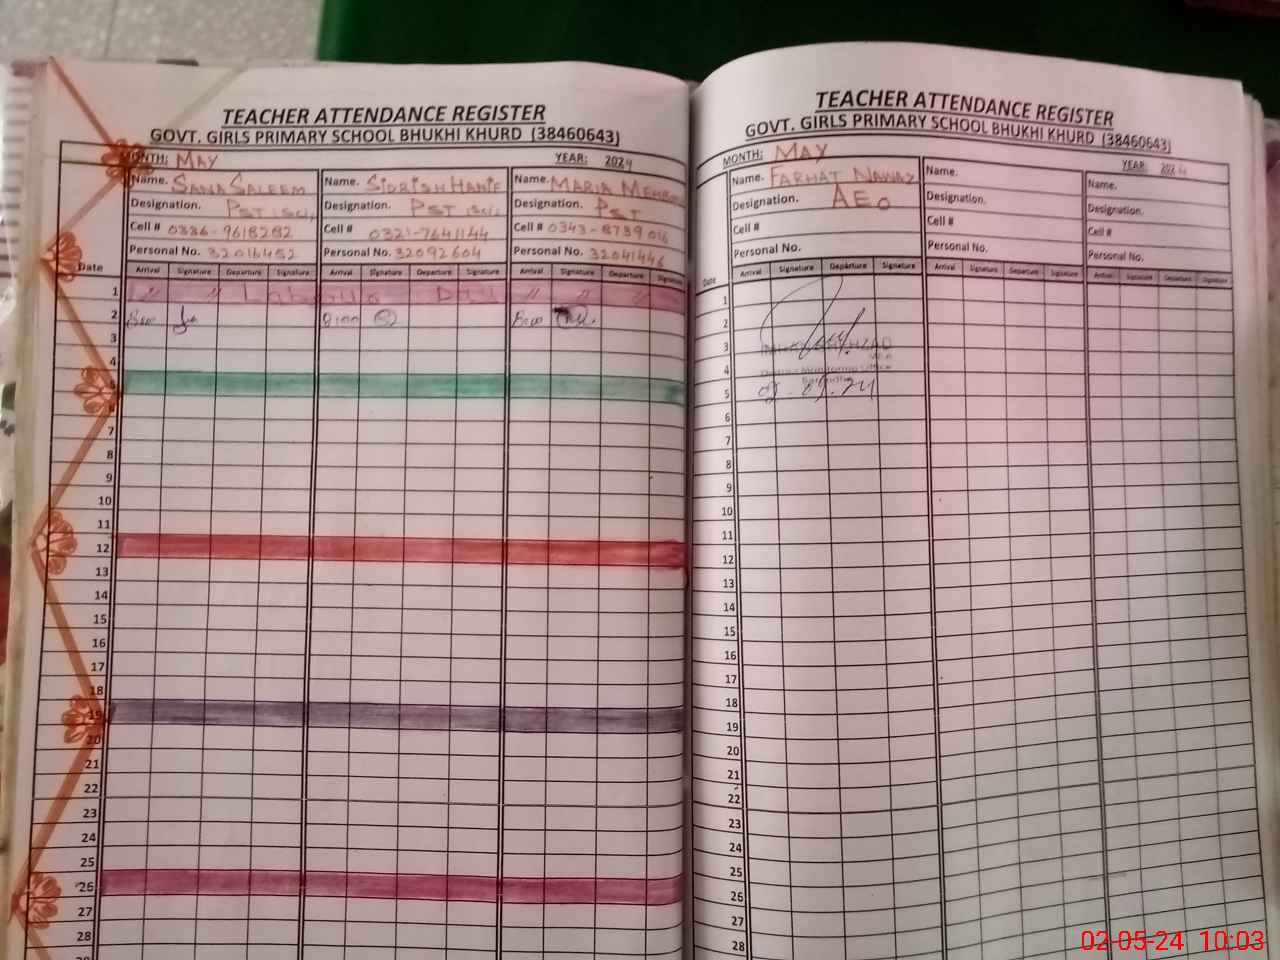 TEACHER ATTENDANCE REGISTER
GOVT. GIRLS PRIMARY SCHOOL BHUKHI KHURD (38460643)
MONTH: MAY YEAR: 2024
Name. SANA SALEEM Name. SIDRISH HANIF Name. MARIA
Designation. PST (Sci) Designation. PST (Sci) Designation. PST
Cell # 0336-9618282 Cell # 0321-7641144 Cell # 0343-8739016
Personal No. 32016452 Personal No. 32092604 Personal No. 32041446
Date Arrival Signature Departure Signature Arrival Signature Departure Signature Arrival Signature Departure Signature
1 " " Labour Day " " "
2
3
4
5
6
7
8
9
10
11
12
13
14
15
16
17
18
19
20
21
22
23
24
25
26
27
28
TEACHER ATTENDANCE REGISTER
GOVT. GIRLS PRIMARY SCHOOL BHUKHI KHURD (38460643)
MONTH: MAY YEAR: 2024
Name. FARHAT NAWAZ Name. Name.
Designation. AEO Designation. Designation.
Cell # Cell # Cell #
Personal No. Personal No. Personal No.
Date Arrival Signature Departure Signature Arrival Signature Departure Signature Arrival Signature Departure Signature
1
2
3
4 Monitoring Office
5
6
7
8
9
10
11
12
13
14
15
16
17
18
19
20
21
22
23
24
25
26
27
28
02-05-24 10:03